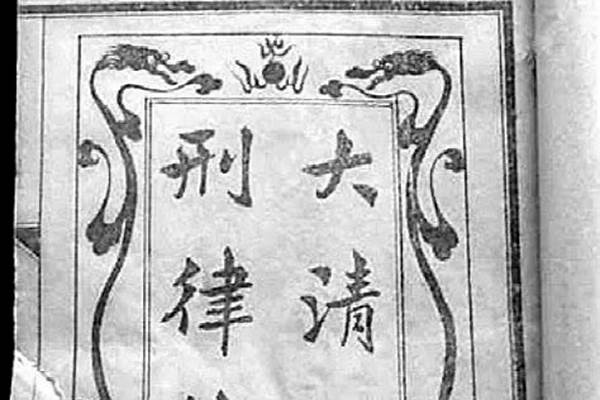 大清
刑律